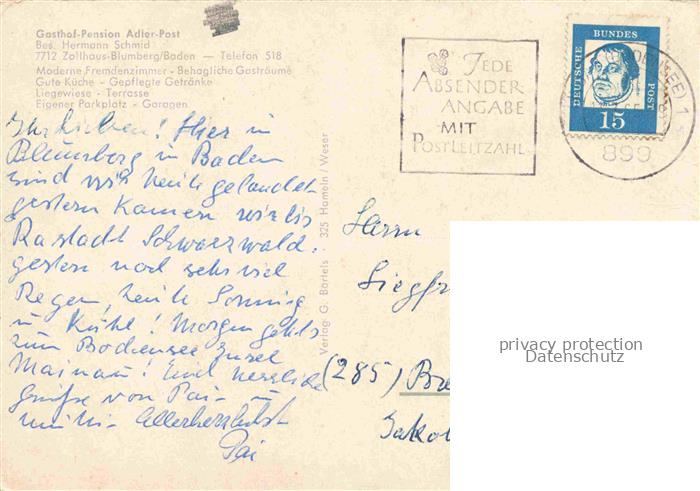 Gasthof-Pension Adler-Post
Bes. Hermann Schmid
7712 Zollhaus-Blumberg/Baden — Telefon 518
Moderne Fremdenzimmer - Behagliche Gasträume
Gute Küche - Gepflegte Getränke
Liegewiese - Terrasse
Eigener Parkplatz - Garagen
Ihr Lieben! Hier in
Blumberg in Baden
sind wir heute gelandet
gestern kamen wir bis
Rastadt Schwarzwald.
gestern noch sehr viel
Regen, heute Sonnig
u Kühl! Morgen gehts
zum Bodensee Insel
Mainau! Viel herzliche
Grüße von Pai- u
Allerherzlichst
Pai
Verlag G. Bartels · 325 Hameln / Weser
JEDE
ABSENDER
ANGABE
MIT
POSTLEITZAHL
DEUTSCHE BUNDESPOST
15
899
Herrn
Siegfr
(285) Bre
Jakob
privacy protection
Datenschutz